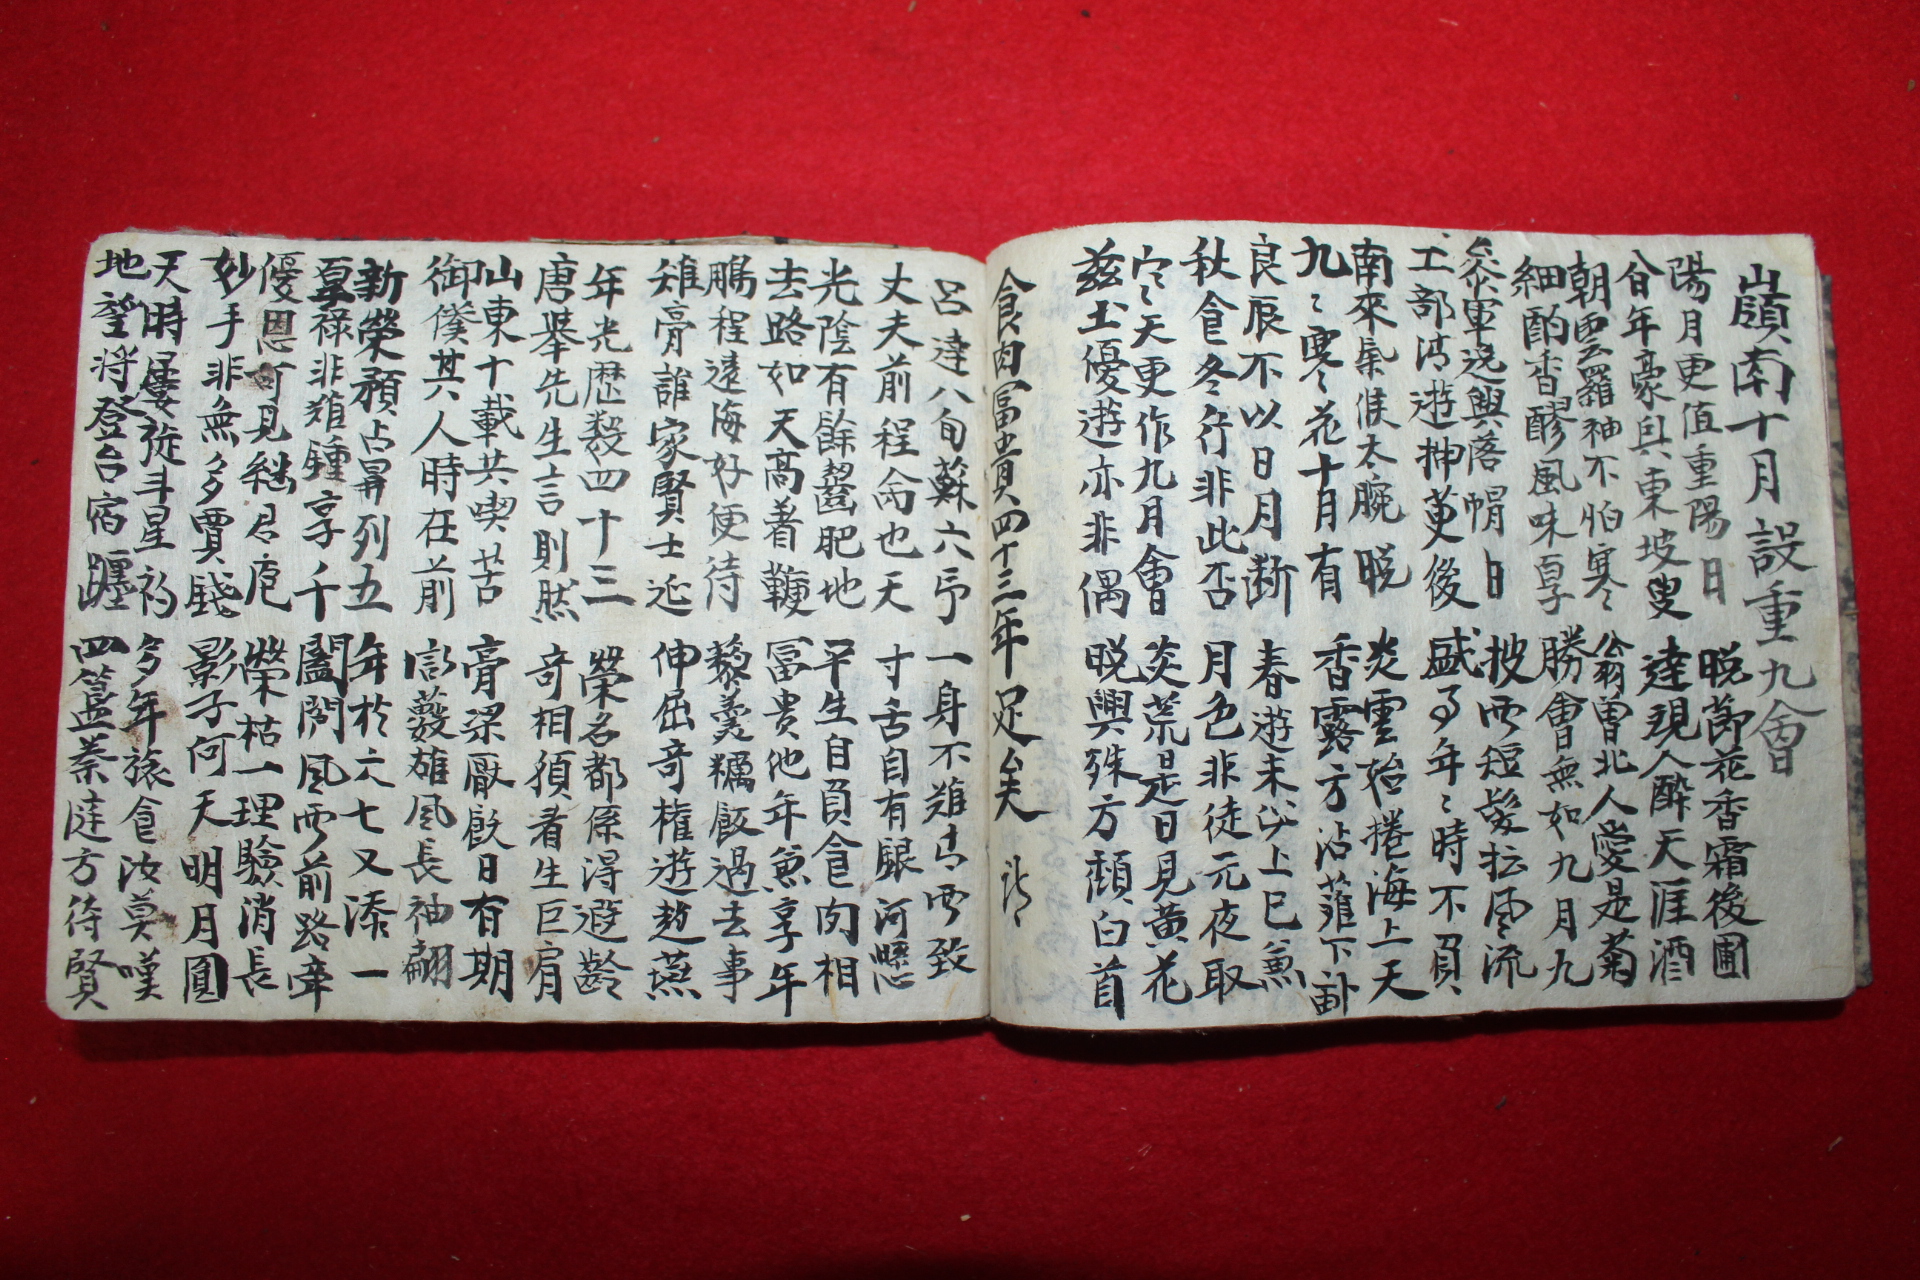 嶺南十月設重九會
陽月更值重陽日 晩節花香霜後圃
百年豪興東坡叟 達現人醉天涯酒
朝雲羅袖不怕寒 翁曾北人愛是菊
細酌香醪風味享 勝會無如九月九
參軍逸興落帽日 披西短髮抎風流
工部清遊揷萸後 盛事年々時不負
南來氣候太晼晩 炎雲始捲海上天
九々寒花十月有 香露方沾薤下
良辰不以日月断 春遊未必上巳兼
秋食冬行非此否 月色非徒元夜取
穴天更作九月會 炎荒是日見黃花
玆土優遊亦非偶 晩興殊方頹白首
食肉冨貴四十三年足矣
呂達八旬蘇六 一身不難
丈夫前程命也天 寸舌自有懸河
光陰有餘齧肥地 平生自負食肉相
去路如天高着鞭 冨贵他年兼享年
鵬程遠海好便待 藜羹糲飯過去事
雉膏誰家賢士延 伸屈奇權遊趙燕
年光歷數四十三 榮名都係得遐齡
唐擧先生言則然 奇相須看生巨肩
山東十載共喫苦 膏梁厭飫日有期
御僕其人時在前 雄風長袖翩
新榮顏占昇列五 年於六七又添一
享祿非難鍾享千 閶闔風雨前路牽
優恩可見繼君庖 榮枯一理驗消長
妙手非無多賈錢 影子何天明月圓
天時屢徙斗星礿 多年旅食汝莫嘆
地望将登台宿躔 四簋蓁莛方待賢